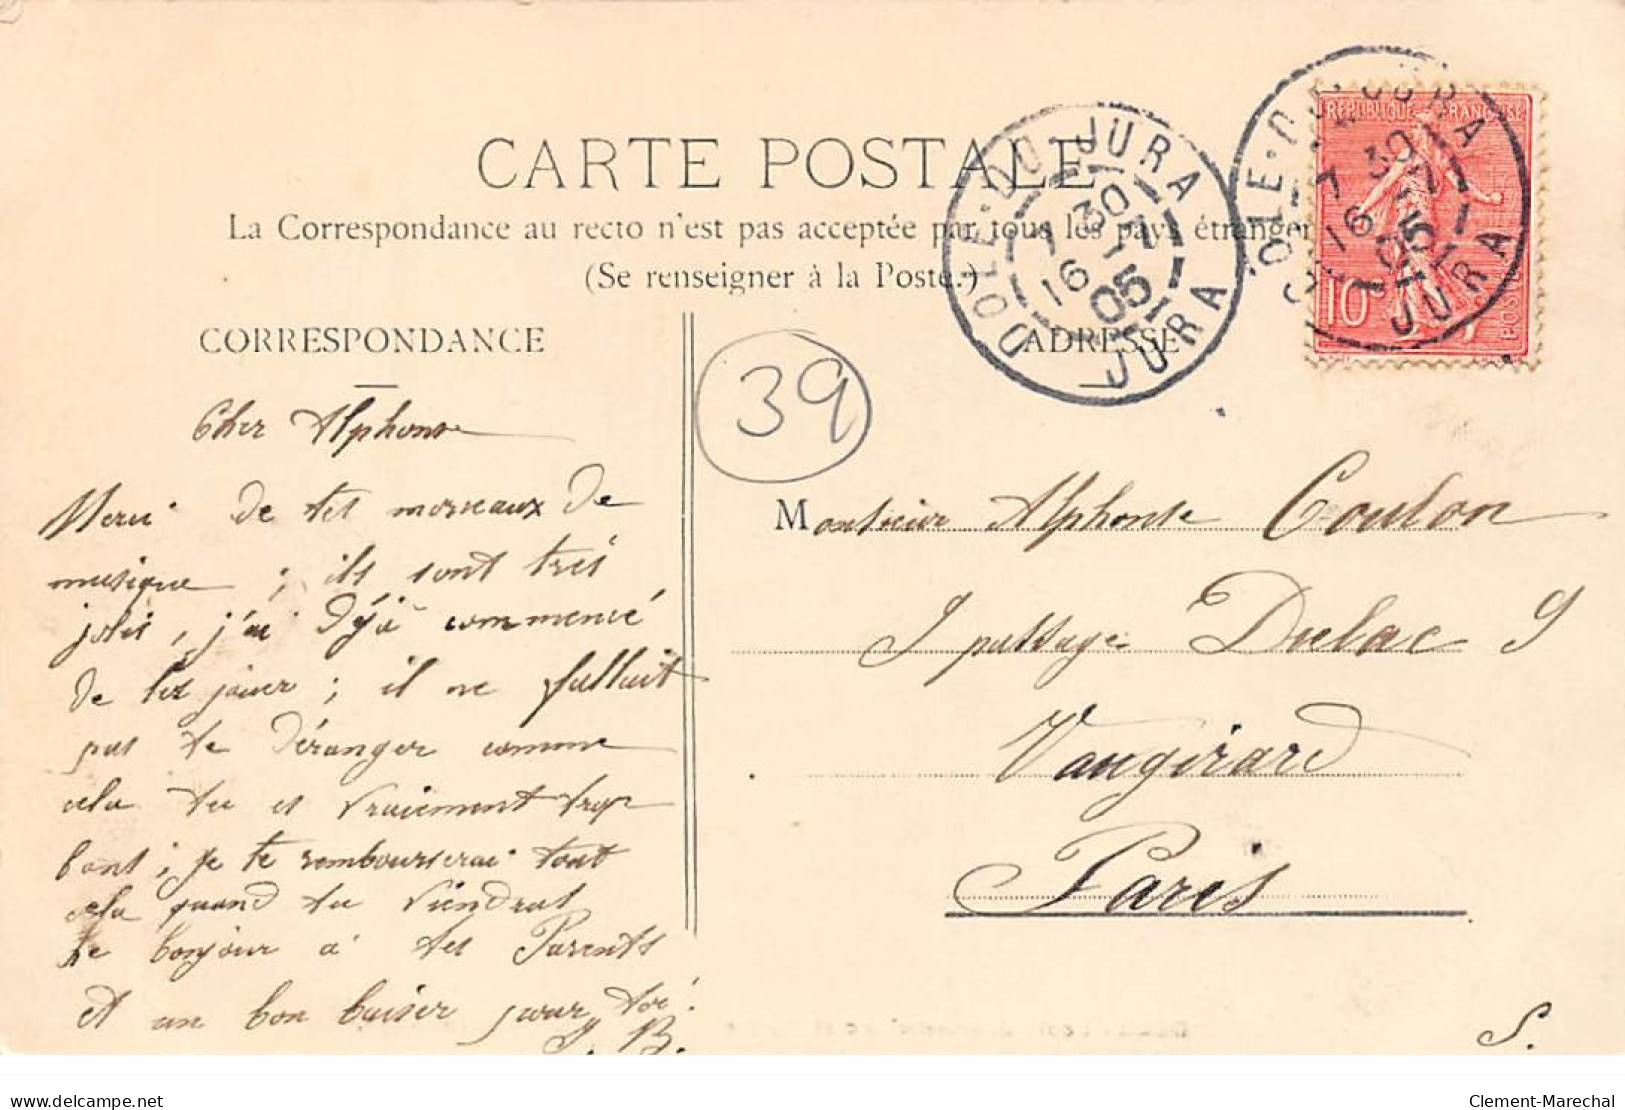 CARTE POSTALE
La Correspondance au recto n'est pas acceptée par tous les pays étranger
(Se renseigner à la Poste.)
CORRESPONDANCE
ADRESSE
DOLE-DU-JURA
7 30
16 05
JURA
DOLE-DU-JURA
7 30
16 05
JURA
REPUBLIQUE FRANÇAISE
10
POSTES
39
Cher Alphonse
Merci de tes morceaux de
musique ; ils sont très
jolis, j'ai déjà commencé
de les jouer ; il ne fallait
pas te déranger comme
cela tu es vraiment trop
bont ; je te rembourserai tout
cela quand tu viendras
le bonjour à tes Parents
et un bon baiser pour toi.
J. B.
Monsieur Alphonse Coulon
9 passage Dulac 9
Vaugirard
Paris
S.
Clement-Marechal